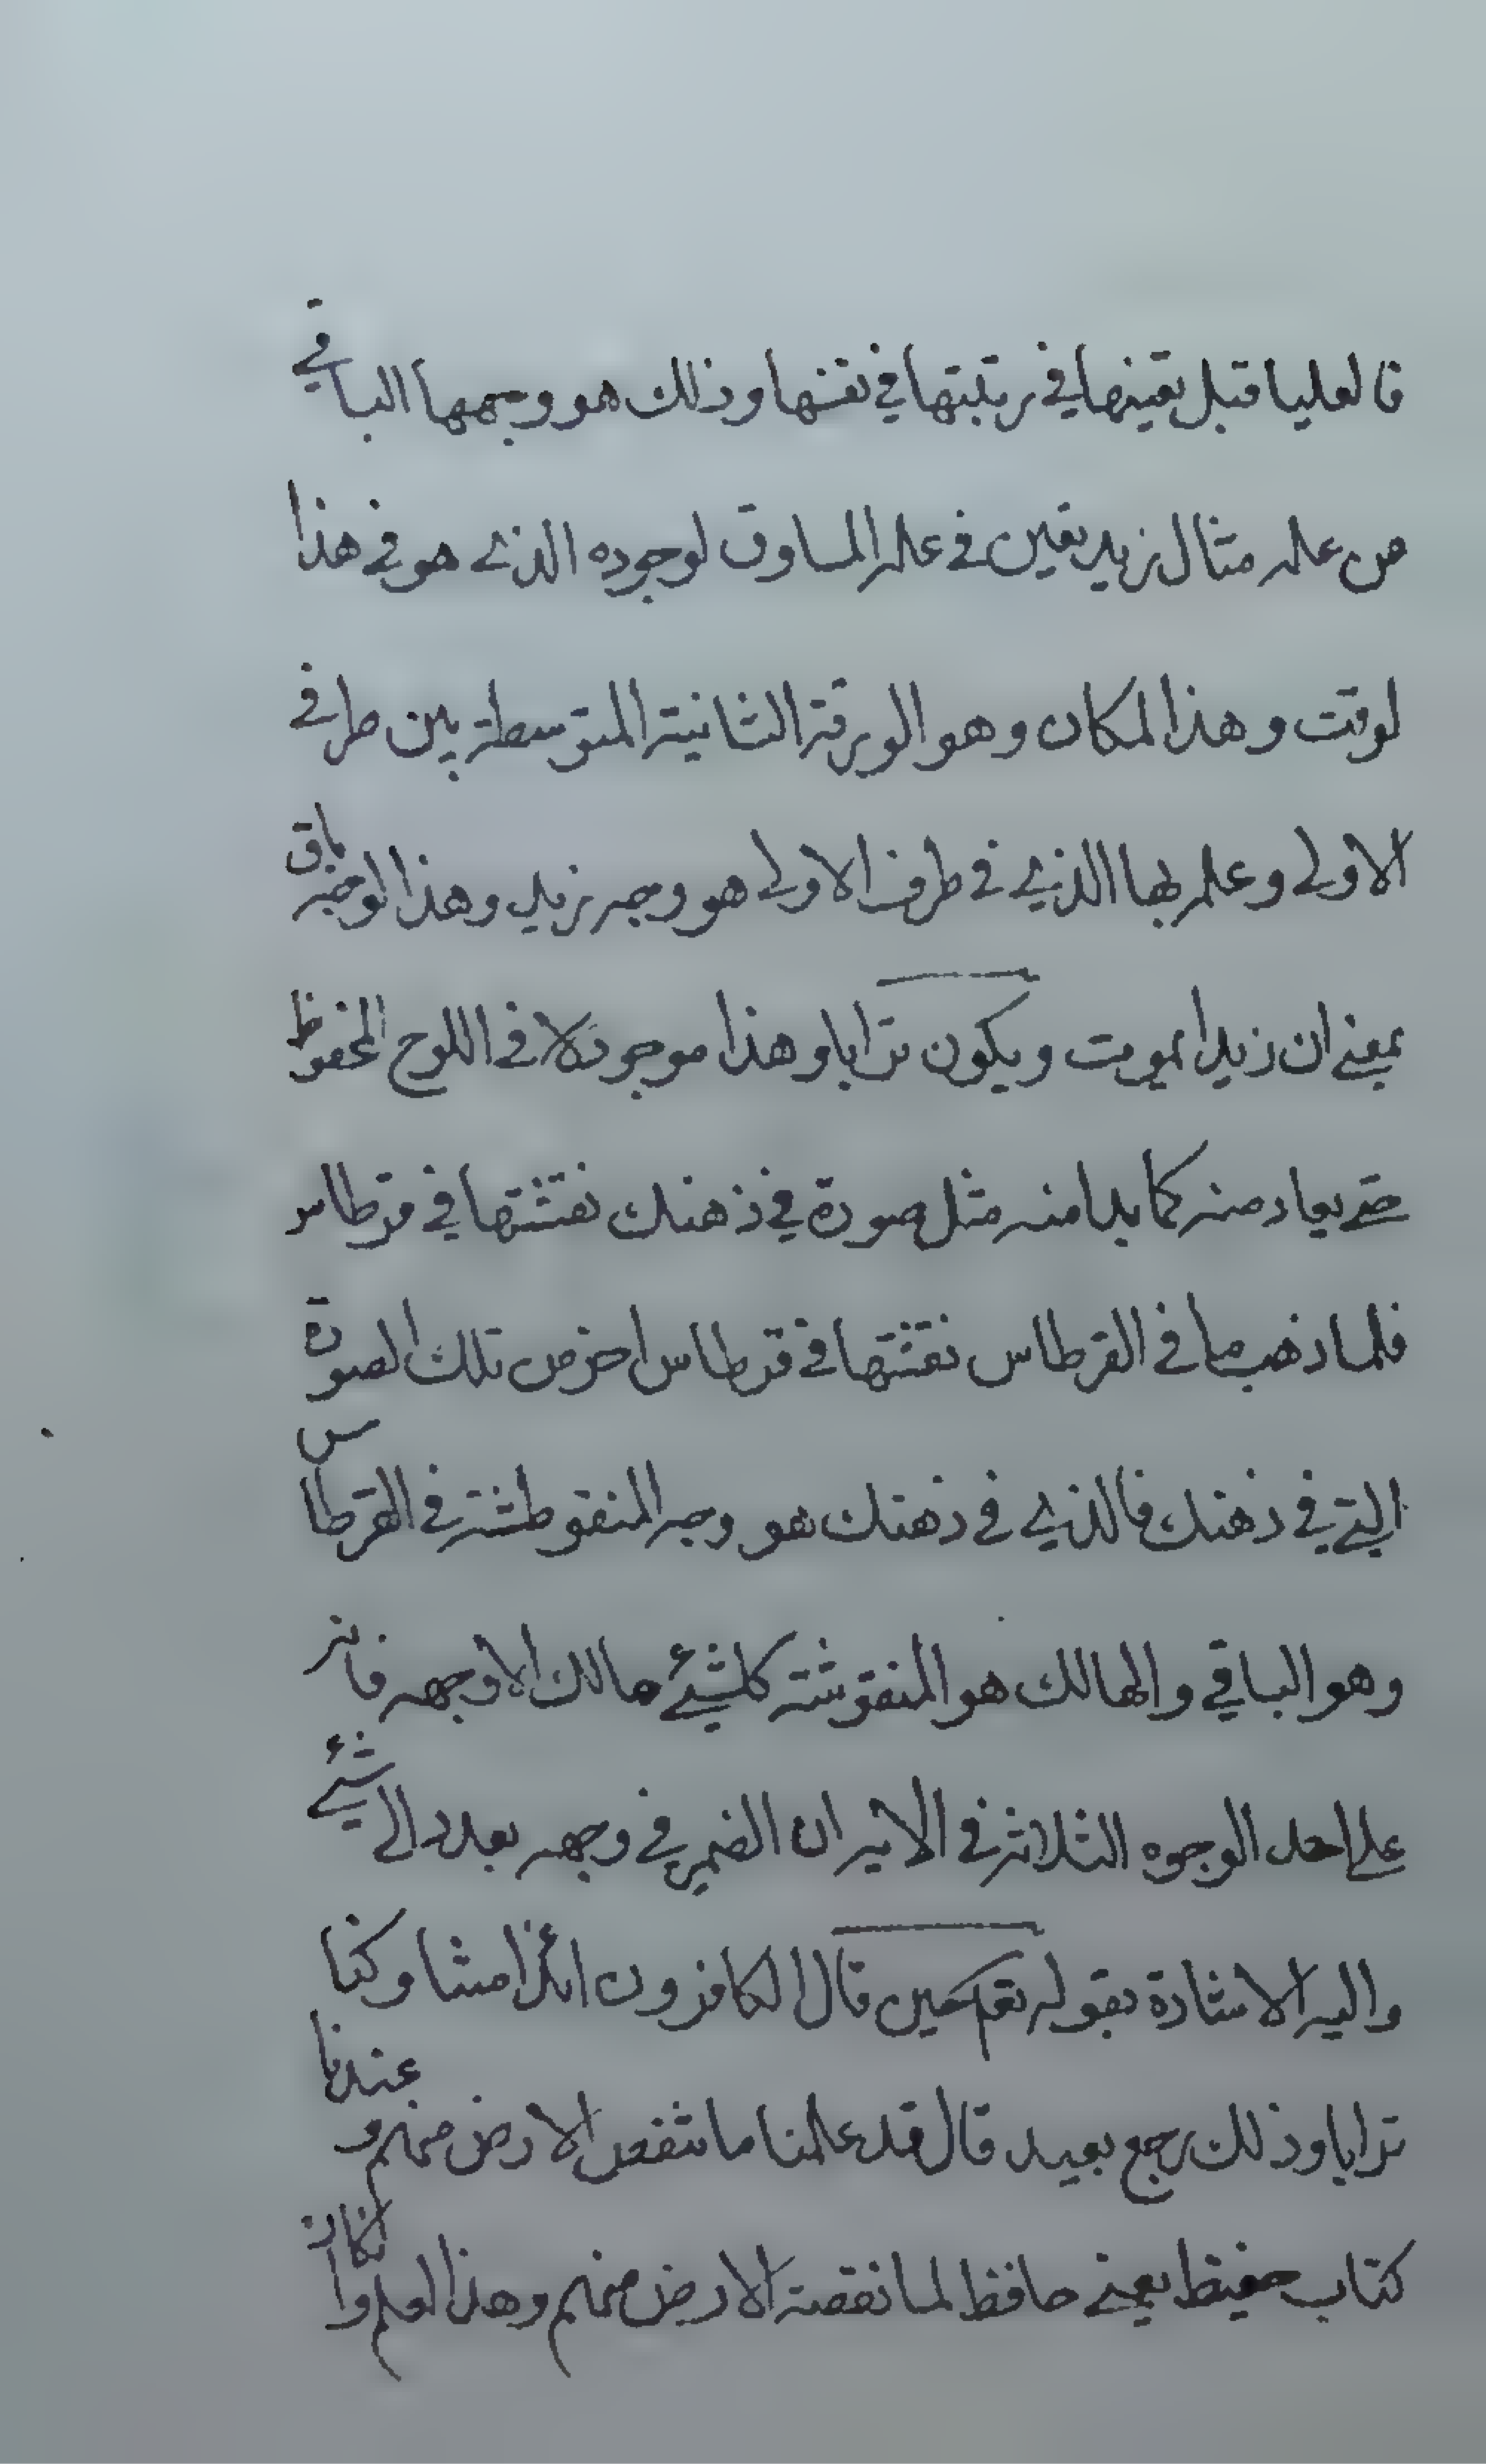 فالعليا قبل تعينها في رتبتها في نفسها وذلك هو وجهها الباقي
من علمه مثال زيد تعين في علمه المساوق لوجوده الذي هو في هذا
لوقت وهذا المكان وهو الورقة الثانية المتوسطة بين طرفي
الاولى وعلمه بها الذي في طرف الاولى هو وجه زيد وهذا الوجه باق
بمعنى ان زيدا يموت ويكون ترابا وهذا موجود في اللوح المحفوظ
حتى يعاد منه كما بدا منه مثل صورة في ذهنك نقشتها في قرطاس
فلما ذهب ما في القرطاس نقشتها في قرطاس اخر من تلك الصورة
التي في ذهنك فالذي في ذهنك هو وجه المنقوطشة في القرطاس
وهو الباقي والهالك هو المنقوشة كلشيء هالك الا وجهه فانه
على احد الوجوه الثلاثة في الاية ان الضمير في وجهه يعود الى شيء
واليه الاشارة بقوله تعم حين قال الكافرون ائذا متنا وكنا
ترابا وذلك رجع بعيد قال قد علمنا ما تنقص الارض منهم وعندنا
كتاب حفيظ يعني حافظ لما نقصته الارض منهم وهذا العلم وان كان